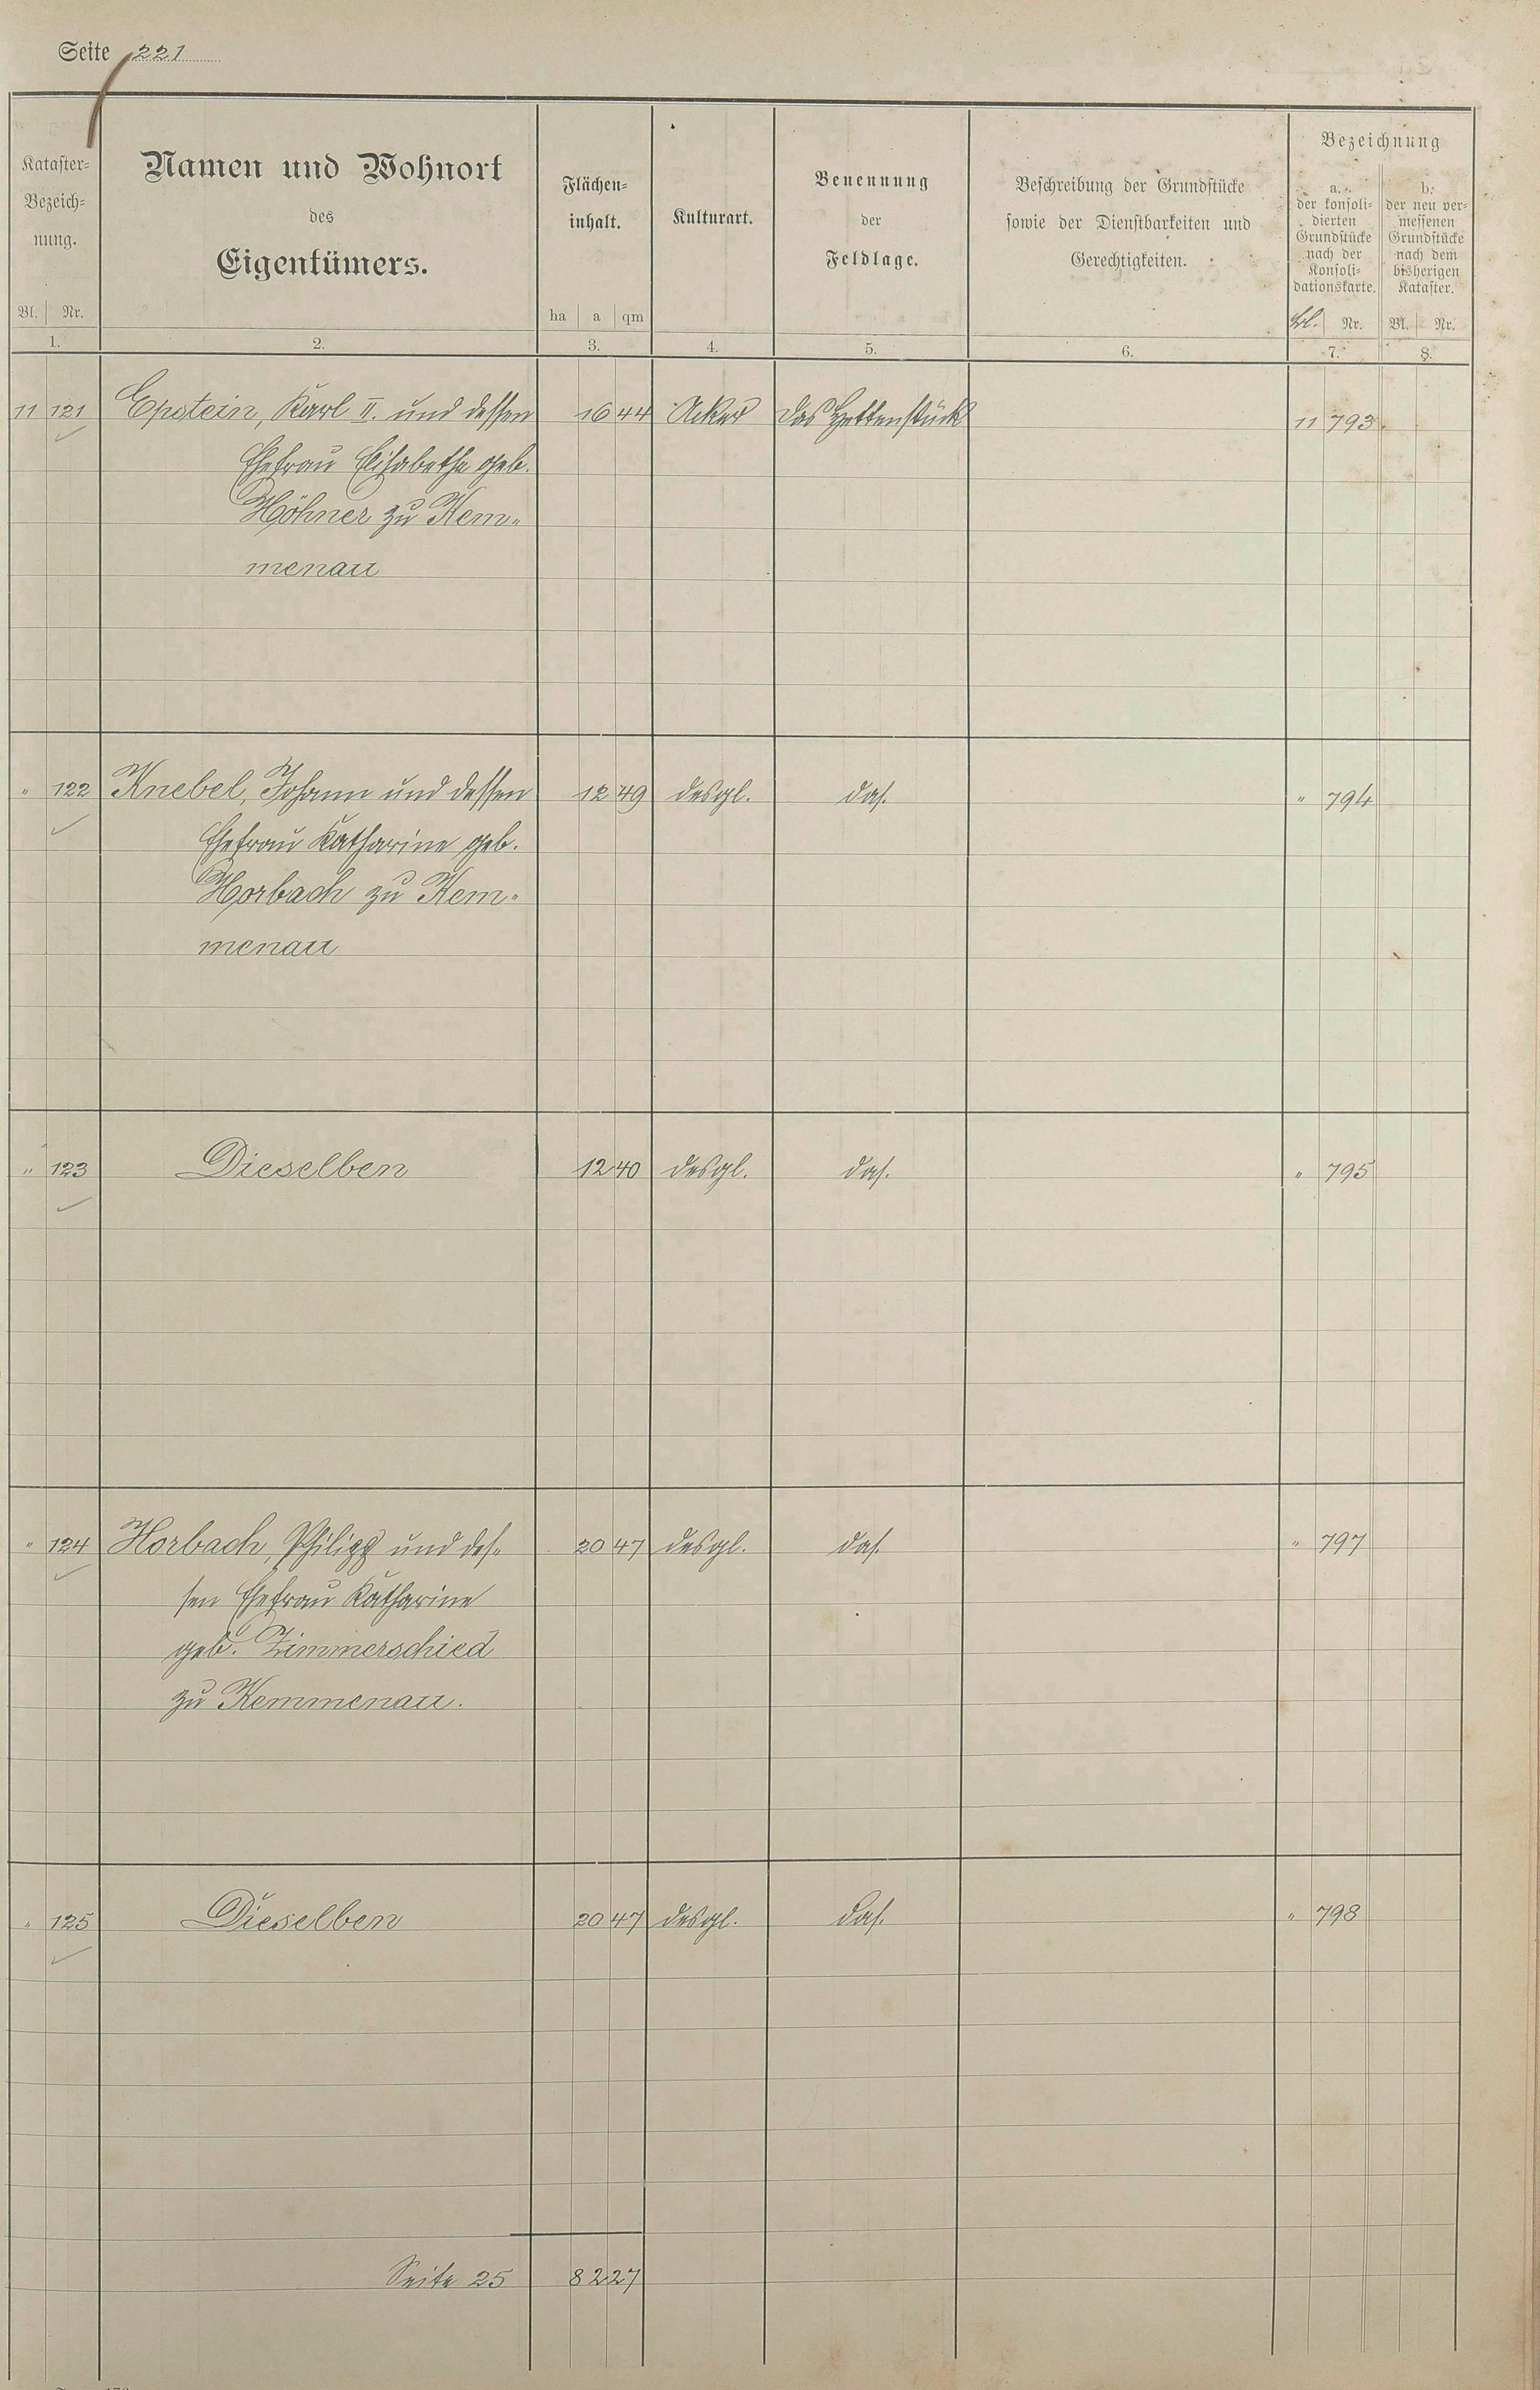 Seite 221
Kataster-
Bezeich-
nung.
Bl. Nr.
1.
Namen und Wohnort
des
Eigentümers.
2.
Flächen-
inhalt.
ha a qm
3.
Kulturart.
4.
Benennung
der
Feldlage.
5.
Beschreibung der Grundstücke
sowie der Dienstbarkeiten und
Gerechtigkeiten.
6.
Bezeichnung
a.
der konsoli-
dierten
Grundstücke
nach der
Konsoli-
dationskarte.
Bl. Nr.
7.
b.
der neu ver-
messenen
Grundstücke
nach dem
bisherigen
Kataster.
Bl. Nr.
8.
11 121 Epstein, Karl II. und dessen 16 44 Acker das Hettenstück 11 793
Ehefrau Elisabethe geb.
Höhner zu Kem-
menau
" 122 Knebel, Johann und dessen 12 49 desgl. das. " 794
Ehefrau Katharine geb.
Horbach zu Kem-
menau
" 123 Dieselben 12 40 desgl. das. " 795
" 124 Horbach, Philipp und des- 20 47 desgl. das. " 797
sen Ehefrau Katharine
geb. Zimmerschied
zu Kemmenau.
" 125 Dieselben 20 47 desgl. das. " 798
Seite 25 82 27